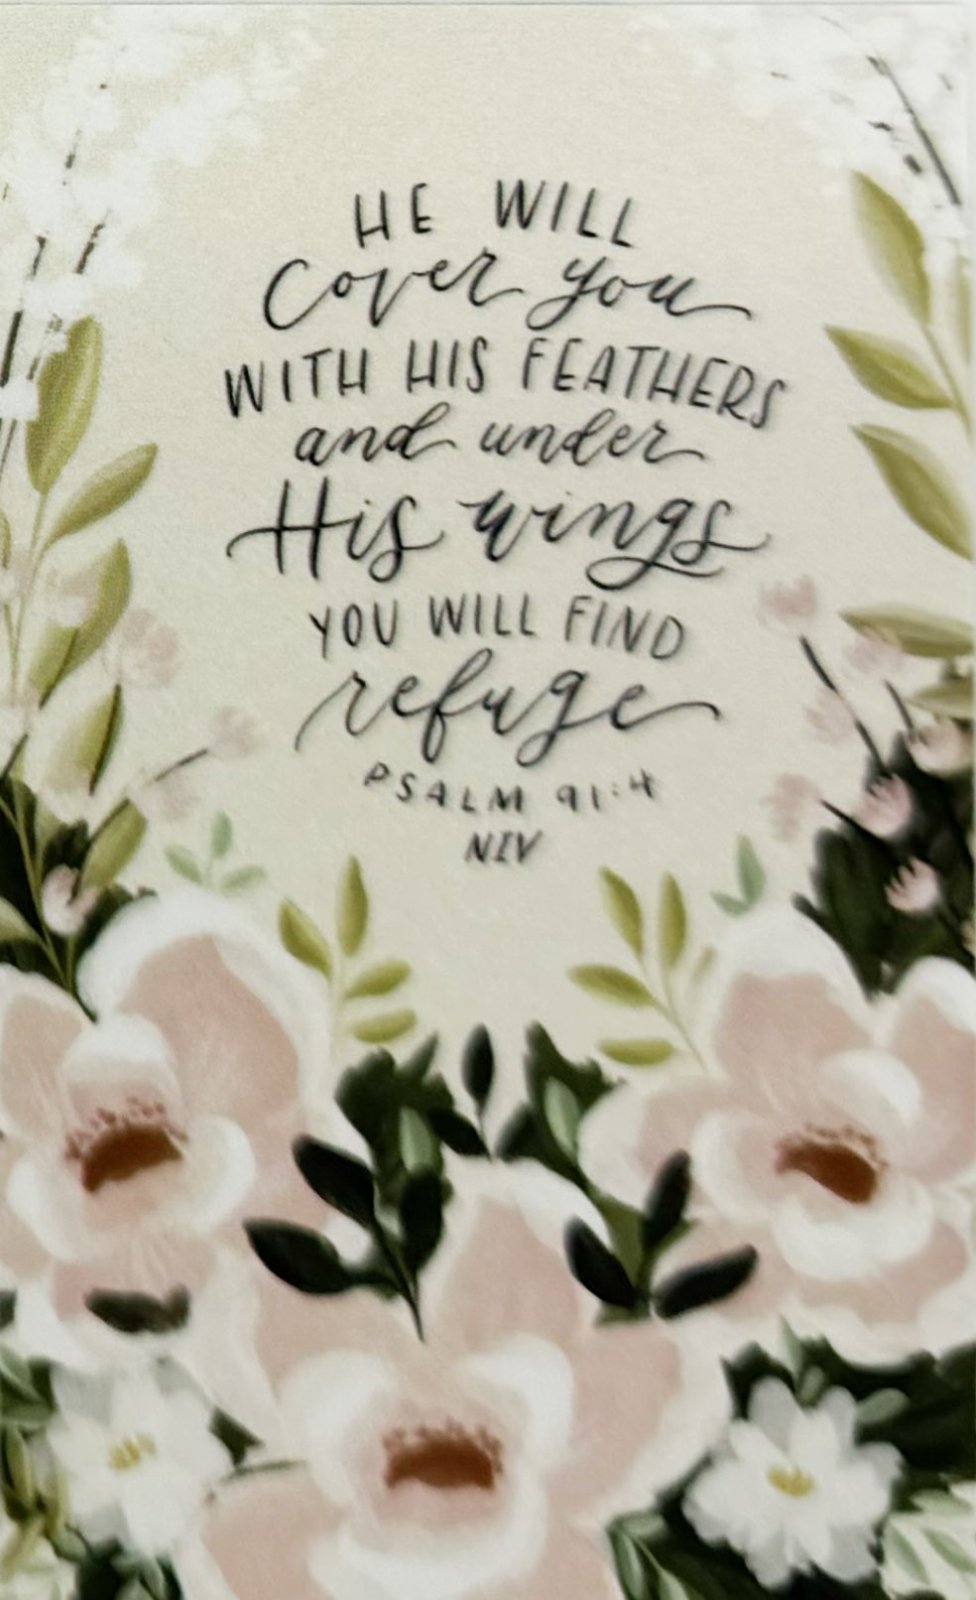 HE WILL
Cover you
WITH HIS FEATHERS
and under
His wings
YOU WILL FIND
refuge
PSALM 91:4
NIV